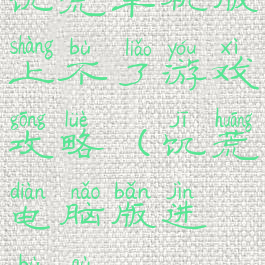 饥荒单机版
shàng bù liǎo yóu xì
上不了游戏
gōng lüè jī huāng
攻略(饥荒
diàn nǎo bǎn jìn
电脑版进
bù qù